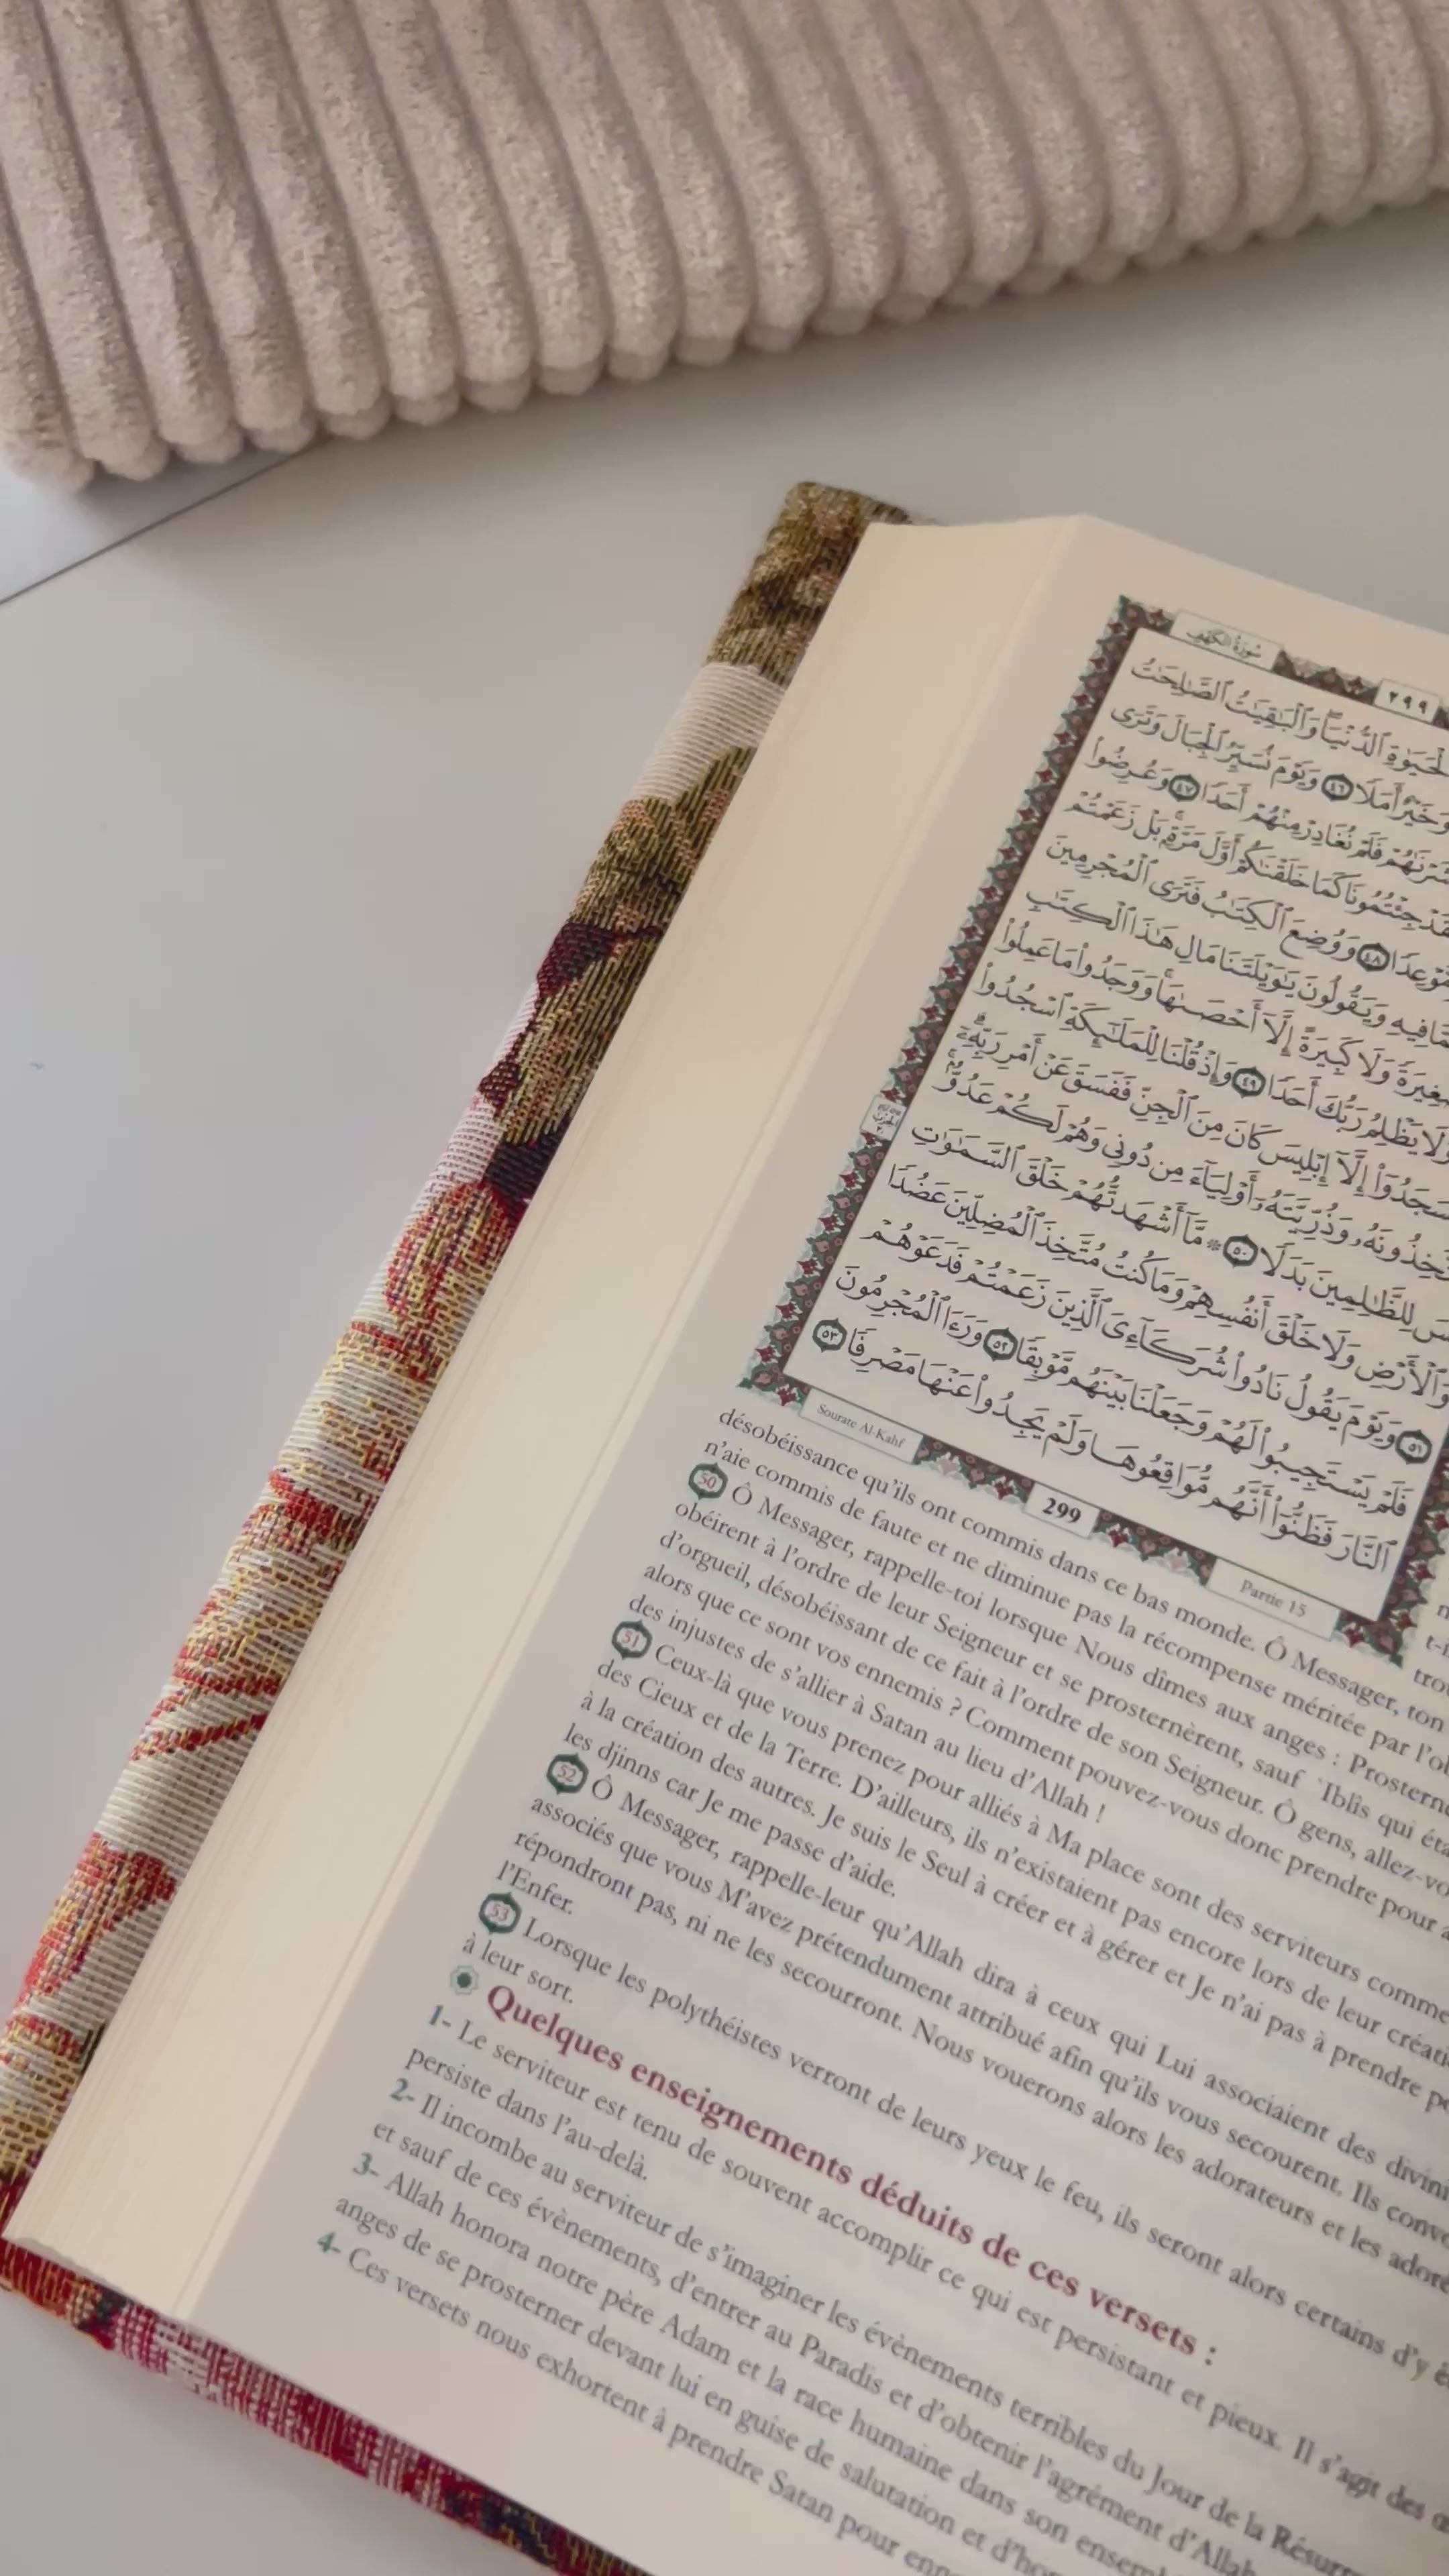 سُورَةُ الكَهْفِ
٢٩٩
ٱلدُّنْيَا وَٱلْبَٰقِيَٰتُ ٱلصَّٰلِحَٰتُ
وَخَيْرٌ أَمَلًا ٤٦ وَيَوْمَ نُسَيِّرُ ٱلْجِبَالَ وَتَرَى
فَلَمْ نُغَادِرْ مِنْهُمْ أَحَدًا ٤٧ وَعُرِضُوا۟
جِئْتُمُونَا كَمَا خَلَقْنَٰكُمْ أَوَّلَ مَرَّةٍۭ بَلْ زَعَمْتُمْ
مَّوْعِدًا ٤٨ وَوُضِعَ ٱلْكِتَٰبُ فَتَرَى ٱلْمُجْرِمِينَ
فِيهِ وَيَقُولُونَ يَٰوَيْلَتَنَا مَالِ هَٰذَا ٱلْكِتَٰبِ
وَلَا كَبِيرَةً إِلَّآ أَحْصَىٰهَا وَوَجَدُوا۟ مَا عَمِلُوا۟
وَلَا يَظْلِمُ رَبُّكَ أَحَدًا ٤٩ وَإِذْ قُلْنَا لِلْمَلَٰٓئِكَةِ ٱسْجُدُوا۟
إِلَّآ إِبْلِيسَ كَانَ مِنَ ٱلْجِنِّ فَفَسَقَ عَنْ أَمْرِ رَبِّهِۦٓ
وَذُرِّيَّتَهُۥٓ أَوْلِيَآءَ مِن دُونِى وَهُمْ لَكُمْ عَدُوٌّۢ
لِلظَّٰلِمِينَ بَدَلًا ٥٠ مَّآ أَشْهَدتُّهُمْ خَلْقَ ٱلسَّمَٰوَٰتِ
وَٱلْأَرْضِ وَلَا خَلْقَ أَنفُسِهِمْ وَمَا كُنتُ مُتَّخِذَ ٱلْمُضِلِّينَ عَضُدًا
٥١ وَيَوْمَ يَقُولُ نَادُوا۟ شُرَكَآءِىَ ٱلَّذِينَ زَعَمْتُمْ فَدَعَوْهُمْ
فَلَمْ يَسْتَجِيبُوا۟ لَهُمْ وَجَعَلْنَا بَيْنَهُم مَّوْبِقًا ٥٢ وَرَءَا ٱلْمُجْرِمُونَ
ٱلنَّارَ فَظَنُّوٓا۟ أَنَّهُم مُّوَاقِعُوهَا وَلَمْ يَجِدُوا۟ عَنْهَا مَصْرِفًا ٥٣
Sourate Al-Kahf 299 Partie 15
désobéissance qu'ils ont commis dans ce bas monde. Ô Messager, ton
n'aie commis de faute et ne diminue pas la récompense méritée par
50 Ô Messager, rappelle-toi lorsque Nous dîmes aux anges :
obéirent à l'ordre de leur Seigneur et se prosternèrent, sauf 'Iblîs qui
d'orgueil, désobéissant de ce fait à l'ordre de son Seigneur. Ô gens,
alors que ce sont vos ennemis ? Comment pouvez-vous donc prendre pour
des injustes de s'allier à Satan au lieu d'Allah !
51 Ceux-là que vous prenez pour alliés à Ma place sont des serviteurs
des Cieux et de la Terre. D'ailleurs, ils n'existaient pas encore lors de leur
à la création des autres. Je suis le Seul à créer et à gérer et Je n'ai pas à prendre
les djinns car Je me passe d'aide.
52 Ô Messager, rappelle-leur qu'Allah dira à ceux qui Lui associaient des
associés que vous M'avez prétendument attribué afin qu'ils vous secourent. Ils
répondront pas, ni ne les secourront. Nous vouerons alors les adorateurs et les
l'Enfer.
53 Lorsque les polythéistes verront de leurs yeux le feu, ils seront alors certains d'y
à leur sort.
Quelques enseignements déduits de ces versets :
1- Le serviteur est tenu de souvent accomplir ce qui est persistant et pieux. Il s'agit des
persiste dans l'au-delà.
2- Il incombe au serviteur de s'imaginer les évènements terribles du Jour de la
et sauf de ces évènements, d'entrer au Paradis et d'obtenir l'agrément d'Allah
3- Allah honora notre père Adam et la race humaine dans son
anges de se prosterner devant lui en guise de salutation et
4- Ces versets nous exhortent à prendre Satan pour